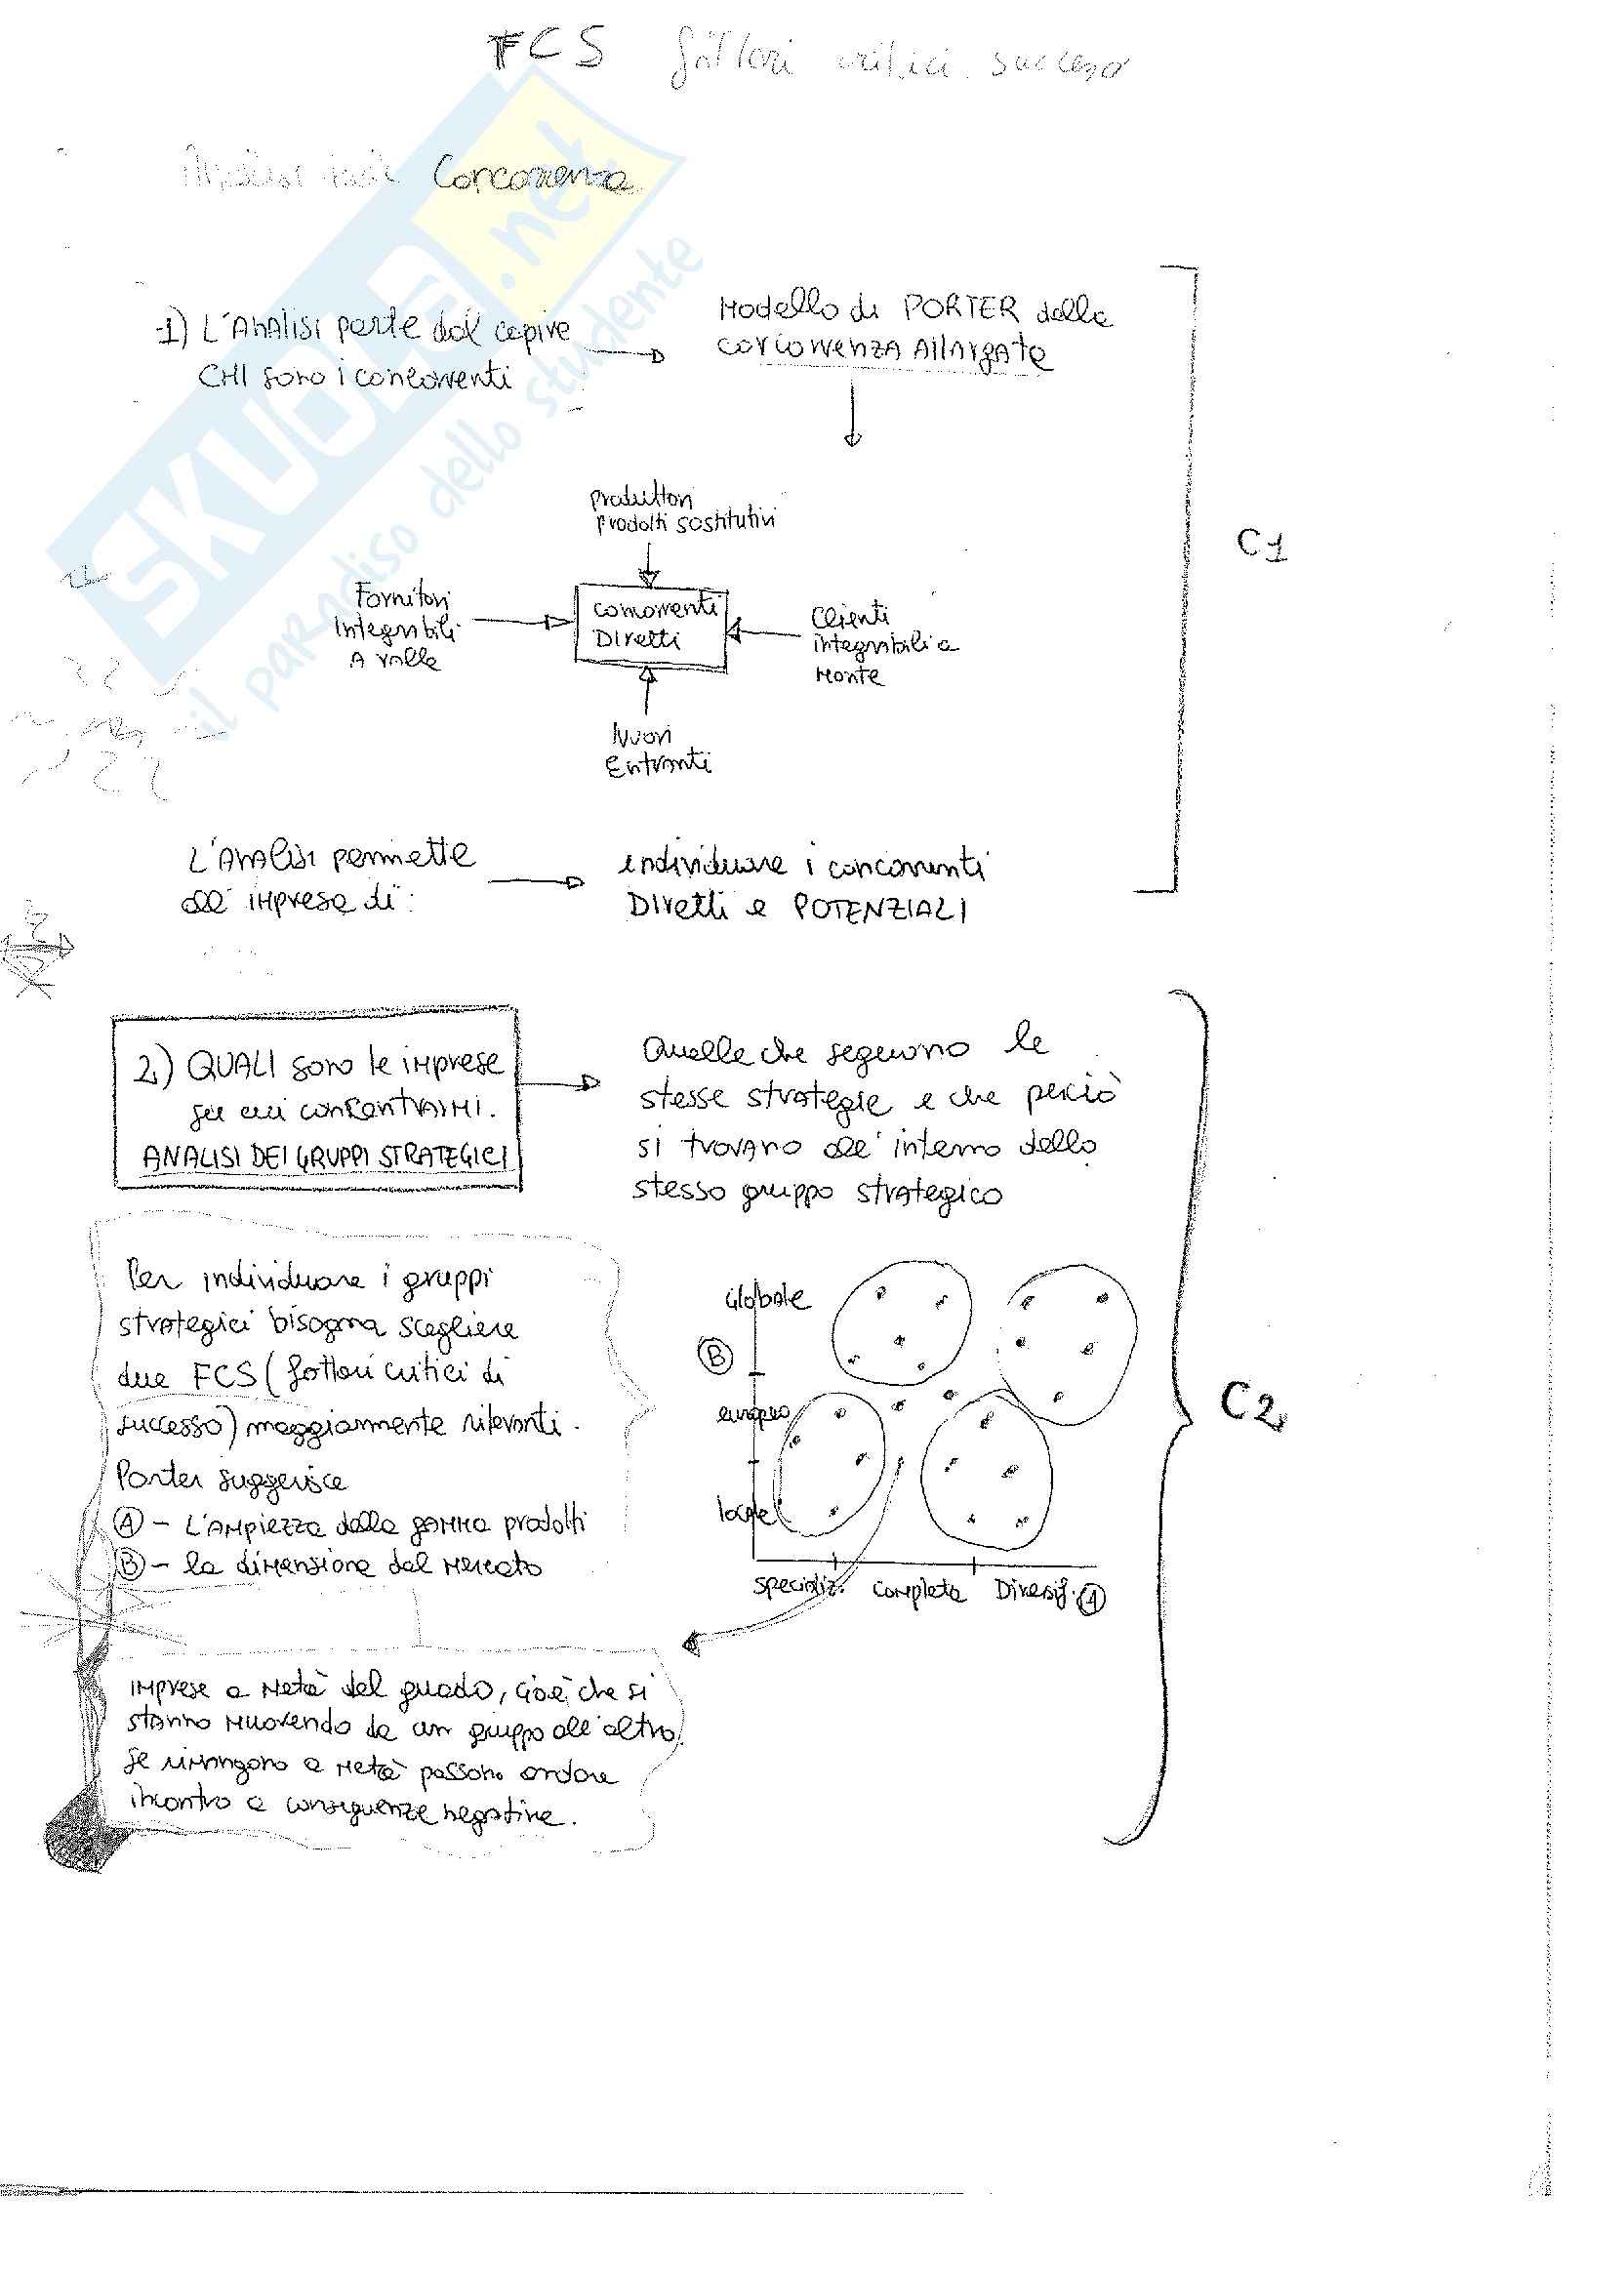 FCS fattori critici successo
Analisi della Concorrenza
SKUOLA.net
il paradiso dello studente
1) L'ANALISI parte dal capire
CHI sono i concorrenti
Modello di PORTER della
concorrenza Allargata
produttori
prodotti sostitutivi
Fornitori
Integrabili
A valle
concorrenti
Diretti
Clienti
integrabili a
Monte
Nuovi
Entranti
C1
L'Analisi permette
all'impresa di:
individuare i concorrenti
Diretti e POTENZIALI
2) QUALI sono le imprese
su cui concentrarmi.
ANALISI DEI GRUPPI STRATEGICI
Quelle che seguono le
stesse strategie e che perciò
si trovano all'interno dello
stesso gruppo strategico
Per individuare i gruppi
strategici bisogna scegliere
due FCS (fattori critici di
successo) maggiormente rilevanti.
Porter suggerisce
A - L'Ampiezza della gamma prodotti
B - la dimensione del mercato
Globale
B
europeo
locale
specializ. completa Diversif. A
C2
imprese a metà del guado, cioè che si
stanno muovendo da un gruppo all'altro,
se rimangono a metà possono andare
incontro a conseguenze negative.